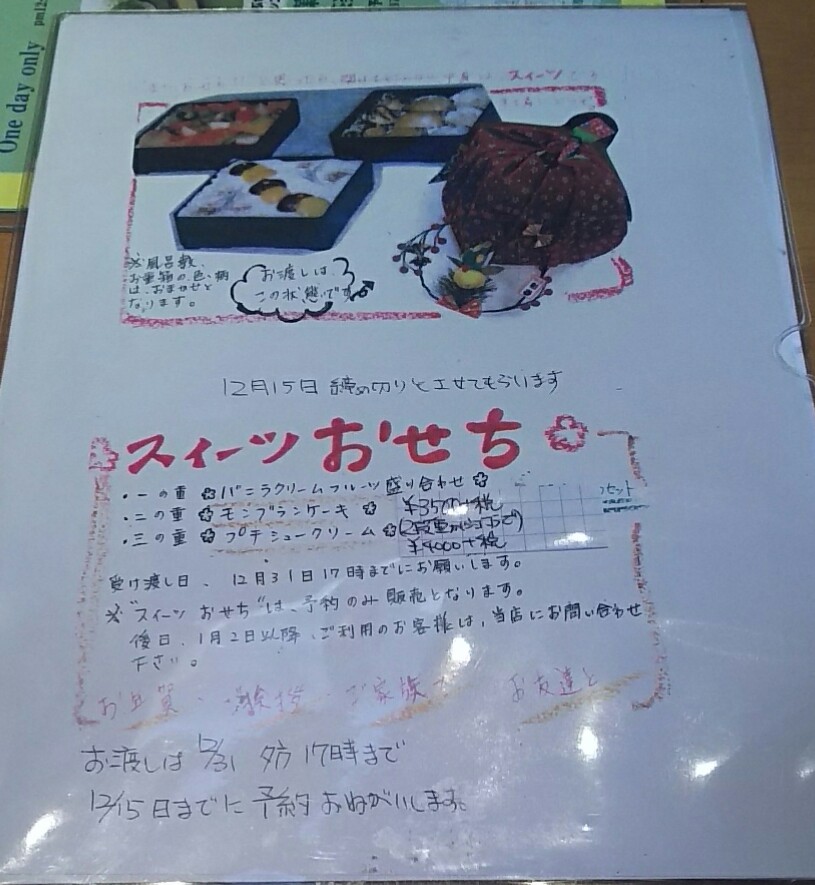 One day only
スイーツ
※風呂敷、
お重箱の色・柄
は、おまかせと
なります。
お渡しは、
この状態です
12月15日 締め切りとさせてもらいます
スイーツ おせち
・一の重 バニラクリームフルーツ盛り合わせ
・二の重 モンブランケーキ ¥3500+税
・三の重 プチシュークリーム
¥4000+税
セット
受け渡し日、12月31日17時までにお願いします。
※"スイーツ おせち"は、予約のみ販売となります。
後日、1月2日以降、ご利用のお客様は、当店にお問い合わせ
下さい。
お年賀 ご家族 お友達と
お渡しは 12/31 夕方 17時まで
12/15日までに予約おねがいします。